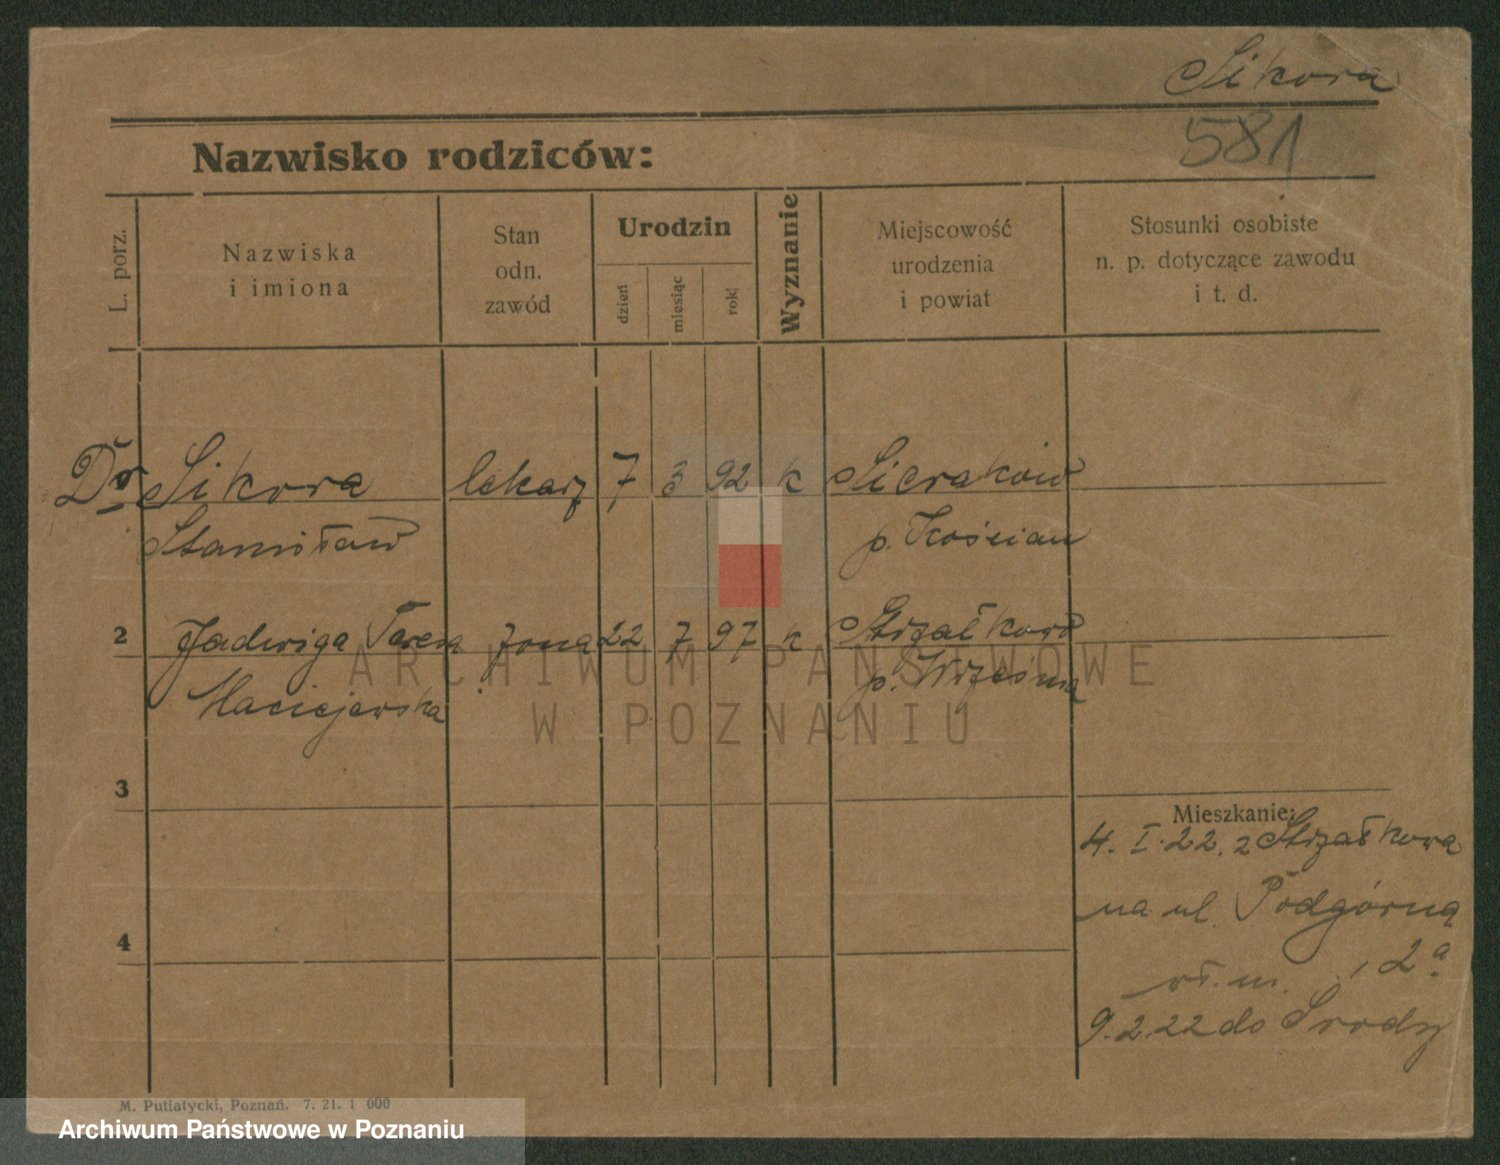 Sikora
581
Nazwisko rodziców:
L. porz.
Nazwiska
i imiona
Stan
odn.
zawód
Urodzin
dzień
miesiąc
rok
Wyznanie
Miejscowość
urodzenia
i powiat
Stosunki osobiste
n. p. dotyczące zawodu
i t. d.
Dr Sikora lekarz 7 3 92 k Sieraków
Stanisław p. Kościan
2 Jadwiga Teresa żona 22 7 97 k Strzałkowo
Maciejewska p. Września
ARCHIWUM PAŃSTWOWE
W POZNANIU
3
Mieszkanie:
4. I. 22. z Strzałkowa
na ul. Podgórną
4
wł. m. 2a
9.2.22 do Środy
M. Putiatycki, Poznań. 7. 21. 1 000
Archiwum Państwowe w Poznaniu